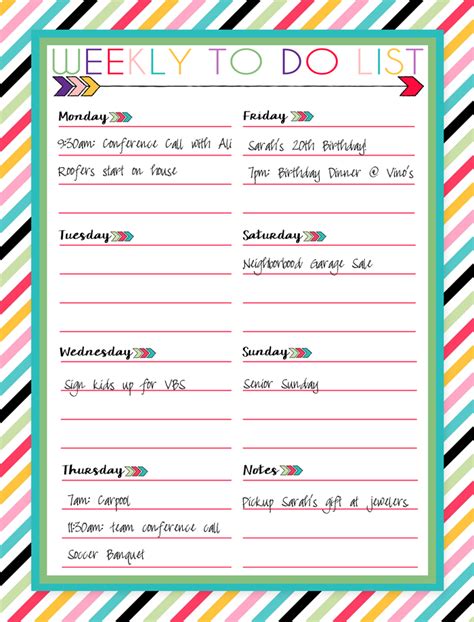 WEEKLY TO DO LIST
Monday
9:30am: Conference Call with Ali
Roofers start on house
Tuesday
Wednesday
Sign kids up for VBS
Thursday
7am: Carpool
11:30am: team conference call
Soccer Banquet
Friday
Sarah's 20th Birthday!
7pm: Birthday Dinner @ Vino's
Saturday
Neighborhood Garage Sale
Sunday
Senior Sunday
Notes
Pickup Sarah's gift at jewelers